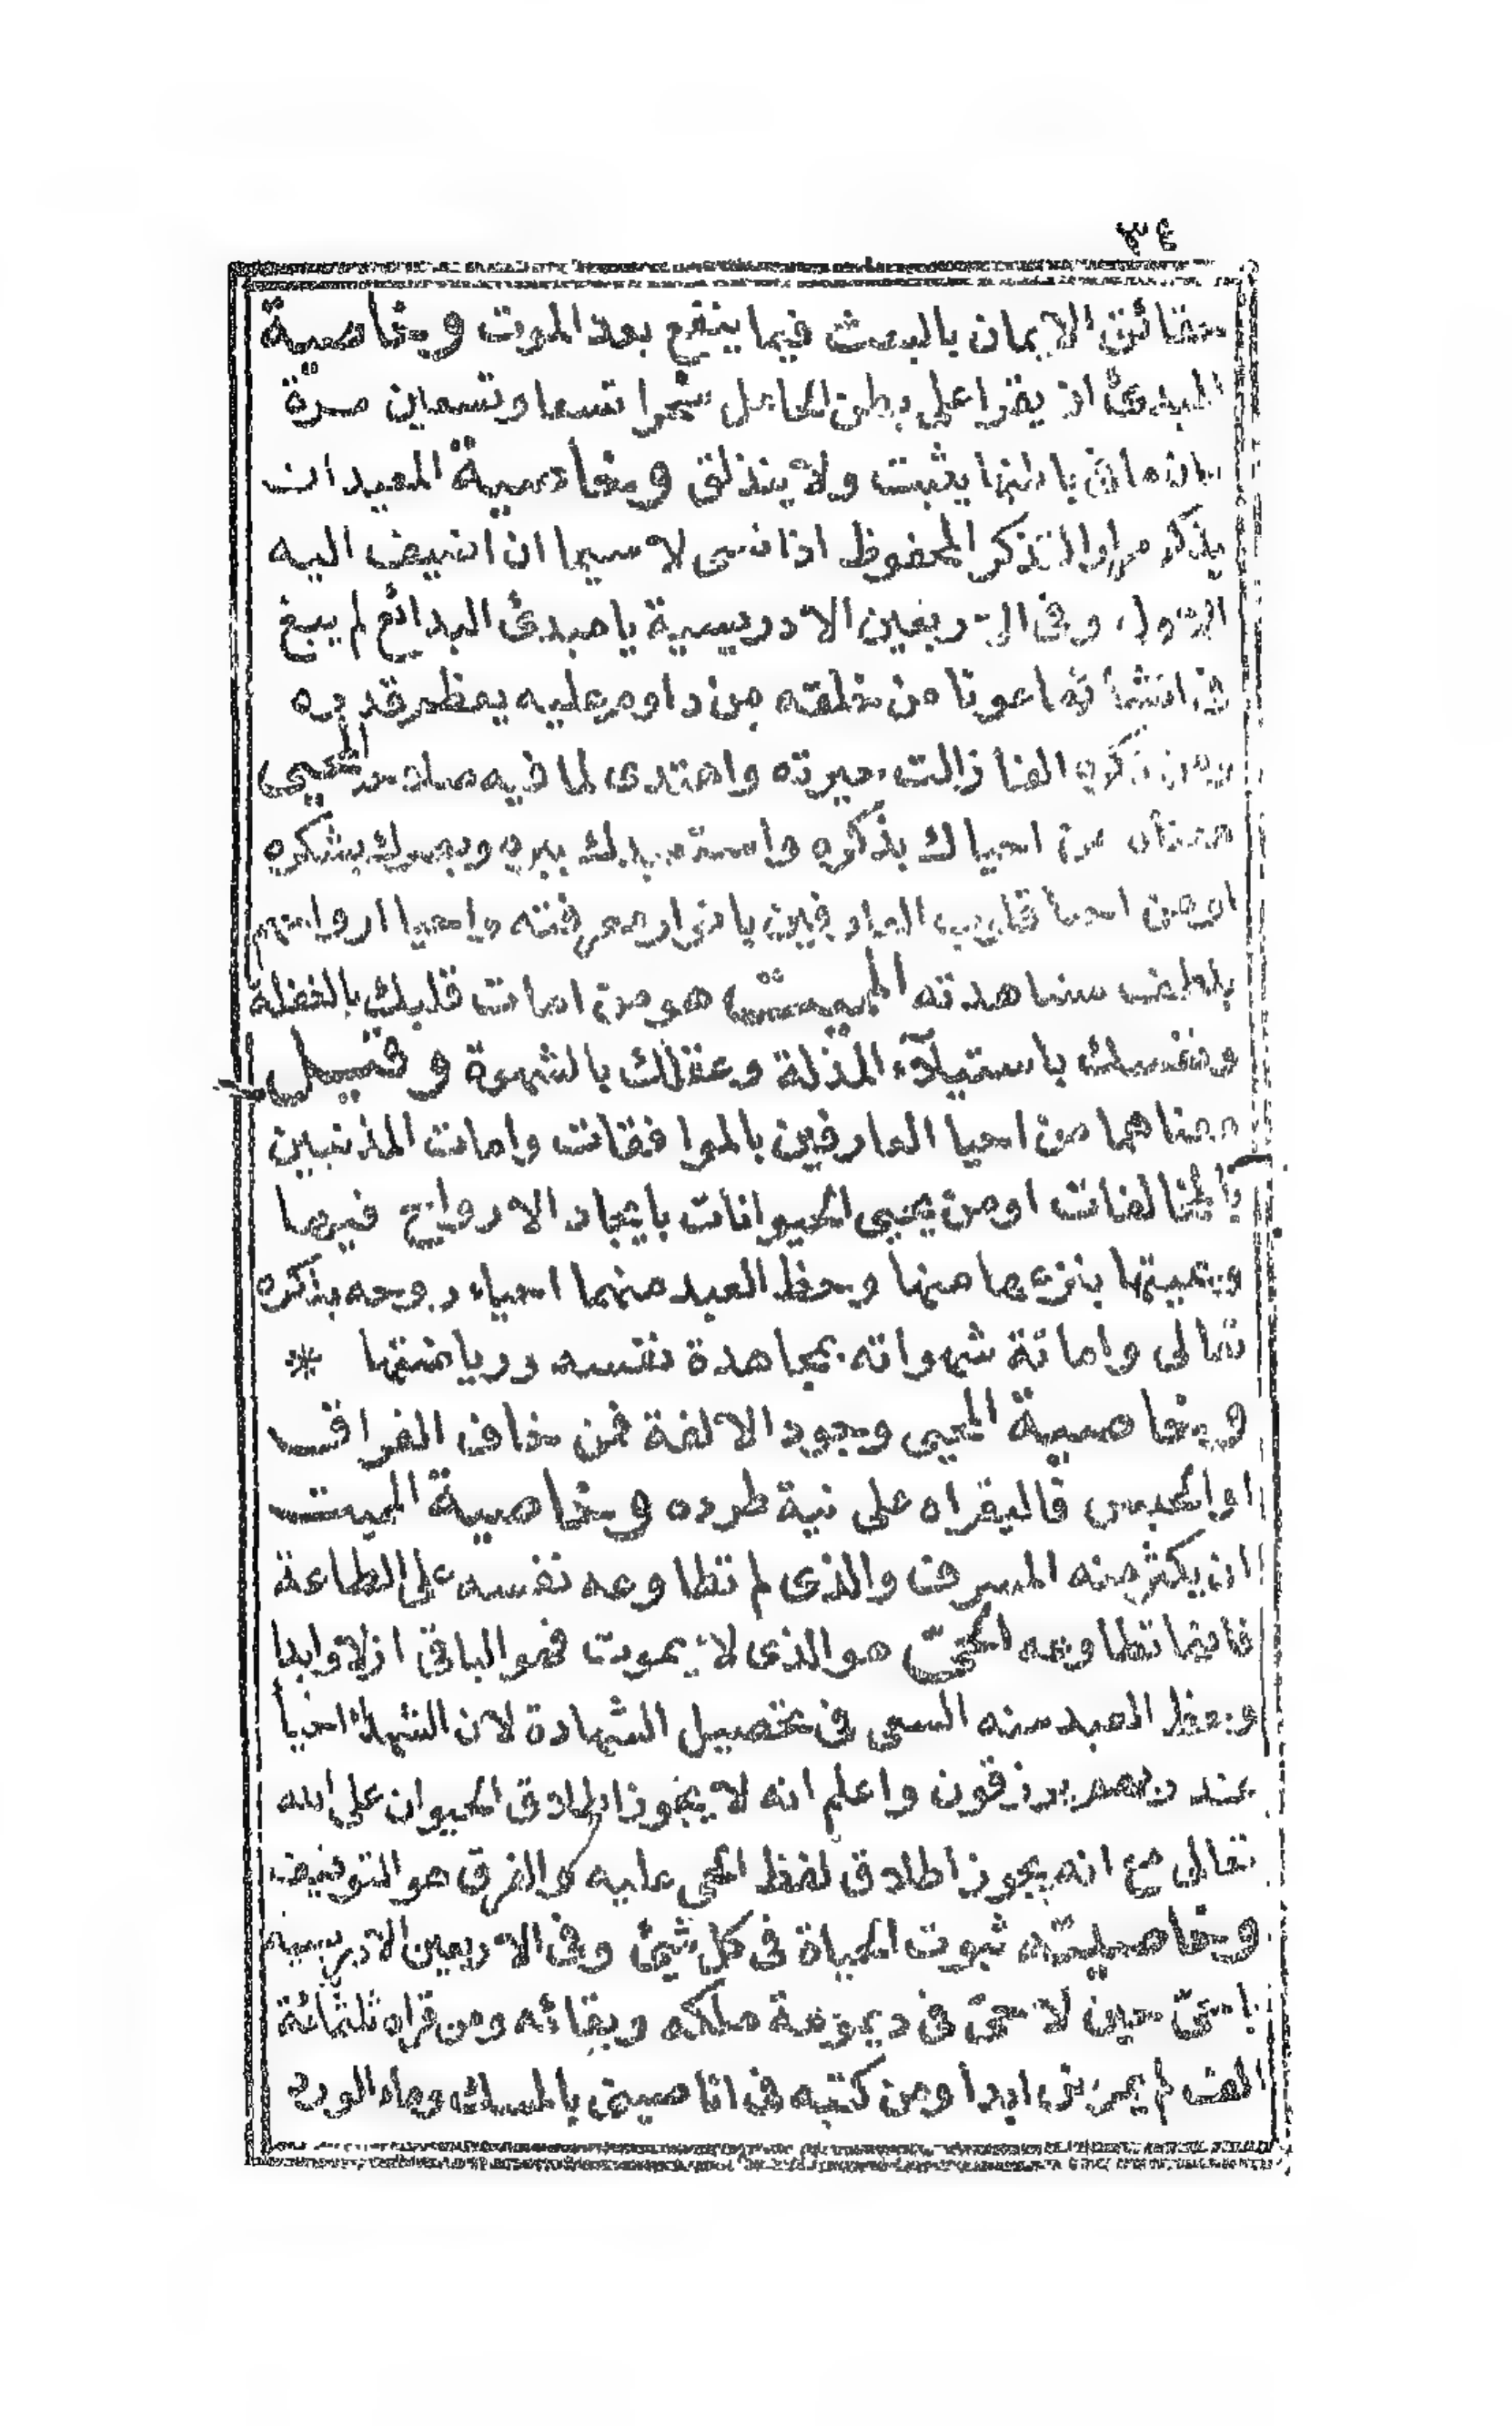 ٣٤
حقائق الايمان بالبعث فيما ينفع بعد الموت وخاصية
المبدئ ان يقرا على بطن الحامل سحرا تسعا وتسعين مرة
فان ما فى باطنها يثبت ولا ينزلق وخاصية المعيد ان
يذكر مرارا لتذكر المحفوظ اذا نسى لا سيما ان اضيف اليه
الاول وفى الاربعين الادريسية يا مبدئ البدائع لم يبغ
فى انشائها عونا من خلقه من داوم عليه يعظم قدره
ومن ذكره الفا زالت حيرته واهتدى لما فيه صلاحه المحيى
معناه من احياك بذكره واستعبدك ببره وبصرك بشكره
او من احيا قلوب العارفين بانوار معرفته واحيا ارواحهم
بلطف مشاهدته المميت هو من امات قلبك بالغفلة
ونفسك باستيلاء المذلة وعقلك بالشهوة وقيل
معناهما من احيا العارفين بالموافقات وامات المذنبين
بالمخالفات او من يحيى الحيوانات بايجاد الارواح فيها
ويميتها بنزعها منها وحظ العبد منهما احياء روحه بذكره
تعالى واماتة شهواته بمجاهدة نفسه ورياضتها *
وخاصية المحيى وجود الالفة فمن خاف الفراق
او الحبس فاليقراه على نية طرده وخاصية المميت
ان يكثر منه المسرف والذى لم تطاوعه نفسه على الطاعة
فانها تطاوعه الحىّ هو الذى لا يموت فهو الباقى ازلا وابدا
وحظ العبد منه السعى فى تحصيل الشهادة لان الشهداء احيا
عند ربهم يرزقون واعلم انه لا يجوز اطلاق الحيوان على الله
تعالى مع انه يجوز اطلاق لفظ الحى عليه والفرق هو التوقيف
وخاصيته ثبوت الحياة فى كل شئ وفى الاربعين الادريسيه
يا حىّ حين لا حىّ فى ديمومة ملكه وبقائه ومن قراه ثلثمائة
الف لم يمرض ابدا ومن كتبه فى انا صينى بالمسك وماء الورد